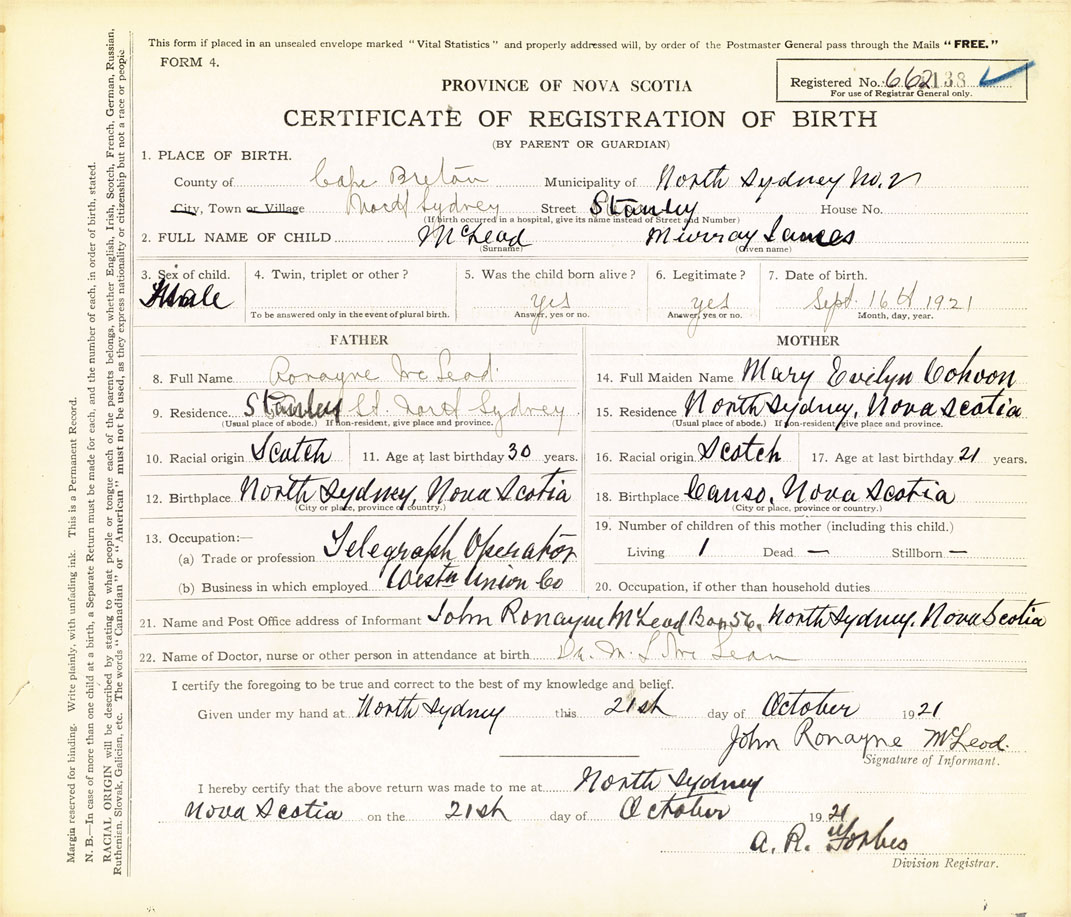 This form if placed in an unsealed envelope marked "Vital Statistics" and properly addressed will, by order of the Postmaster General pass through the Mails "FREE."
FORM 4.
PROVINCE OF NOVA SCOTIA
Registered No. 662138
For use of Registrar General only.
CERTIFICATE OF REGISTRATION OF BIRTH
(BY PARENT OR GUARDIAN)
1. PLACE OF BIRTH.
County of Cape Breton Municipality of North Sydney No. 2
City, Town or Village North Sydney Street Stanley House No.
(If birth occurred in a hospital, give its name instead of Street and Number)
2. FULL NAME OF CHILD McLead Murray James
(Surname) (Given name)
3. Sex of child. 4. Twin, triplet or other? 5. Was the child born alive? 6. Legitimate? 7. Date of birth.
Male yes yes Sept. 16th 1921
To be answered only in the event of plural birth. Answer, yes or no. Answer, yes or no. Month, day, year.
FATHER MOTHER
8. Full Name Ronayne McLeod 14. Full Maiden Name Mary Evelyn Cohoon
9. Residence Stanley St. North Sydney 15. Residence North Sydney, Nova Scotia
(Usual place of abode.) If non-resident, give place and province. (Usual place of abode.) If non-resident, give place and province.
10. Racial origin Scotch 11. Age at last birthday 30 years. 16. Racial origin Scotch 17. Age at last birthday 21 years.
12. Birthplace North Sydney, Nova Scotia 18. Birthplace Canso, Nova Scotia
(City or place, province or country.) (City or place, province or country.)
13. Occupation:— 19. Number of children of this mother (including this child.)
(a) Trade or profession Telegraph Operator Living 1 Dead — Stillborn —
(b) Business in which employed Westn Union Co 20. Occupation, if other than household duties
21. Name and Post Office address of Informant John Ronayne McLeod Box 56, North Sydney, Nova Scotia
22. Name of Doctor, nurse or other person in attendance at birth Dr. M. L. McLean
I certify the foregoing to be true and correct to the best of my knowledge and belief.
Given under my hand at North Sydney this 21st day of October 1921
John Ronayne McLeod.
Signature of Informant.
I hereby certify that the above return was made to me at North Sydney
Nova Scotia on the 21st day of October 1921
A. R. Forbes
Division Registrar.
Margin reserved for binding. Write plainly, with unfading ink. This is a Permanent Record.
N. B.—In case of more than one child at a birth, a Separate Return must be made for each, and the number of each, in order of birth, stated.
RACIAL ORIGIN will be described by stating to what people or tongue each of the parents belongs, whether English, Irish, Scotch, French, German, Russian,
Ruthenian, Slovak, Galician, etc. The words "Canadian" or "American" must not be used, as they express nationality or citizenship but not a race or people